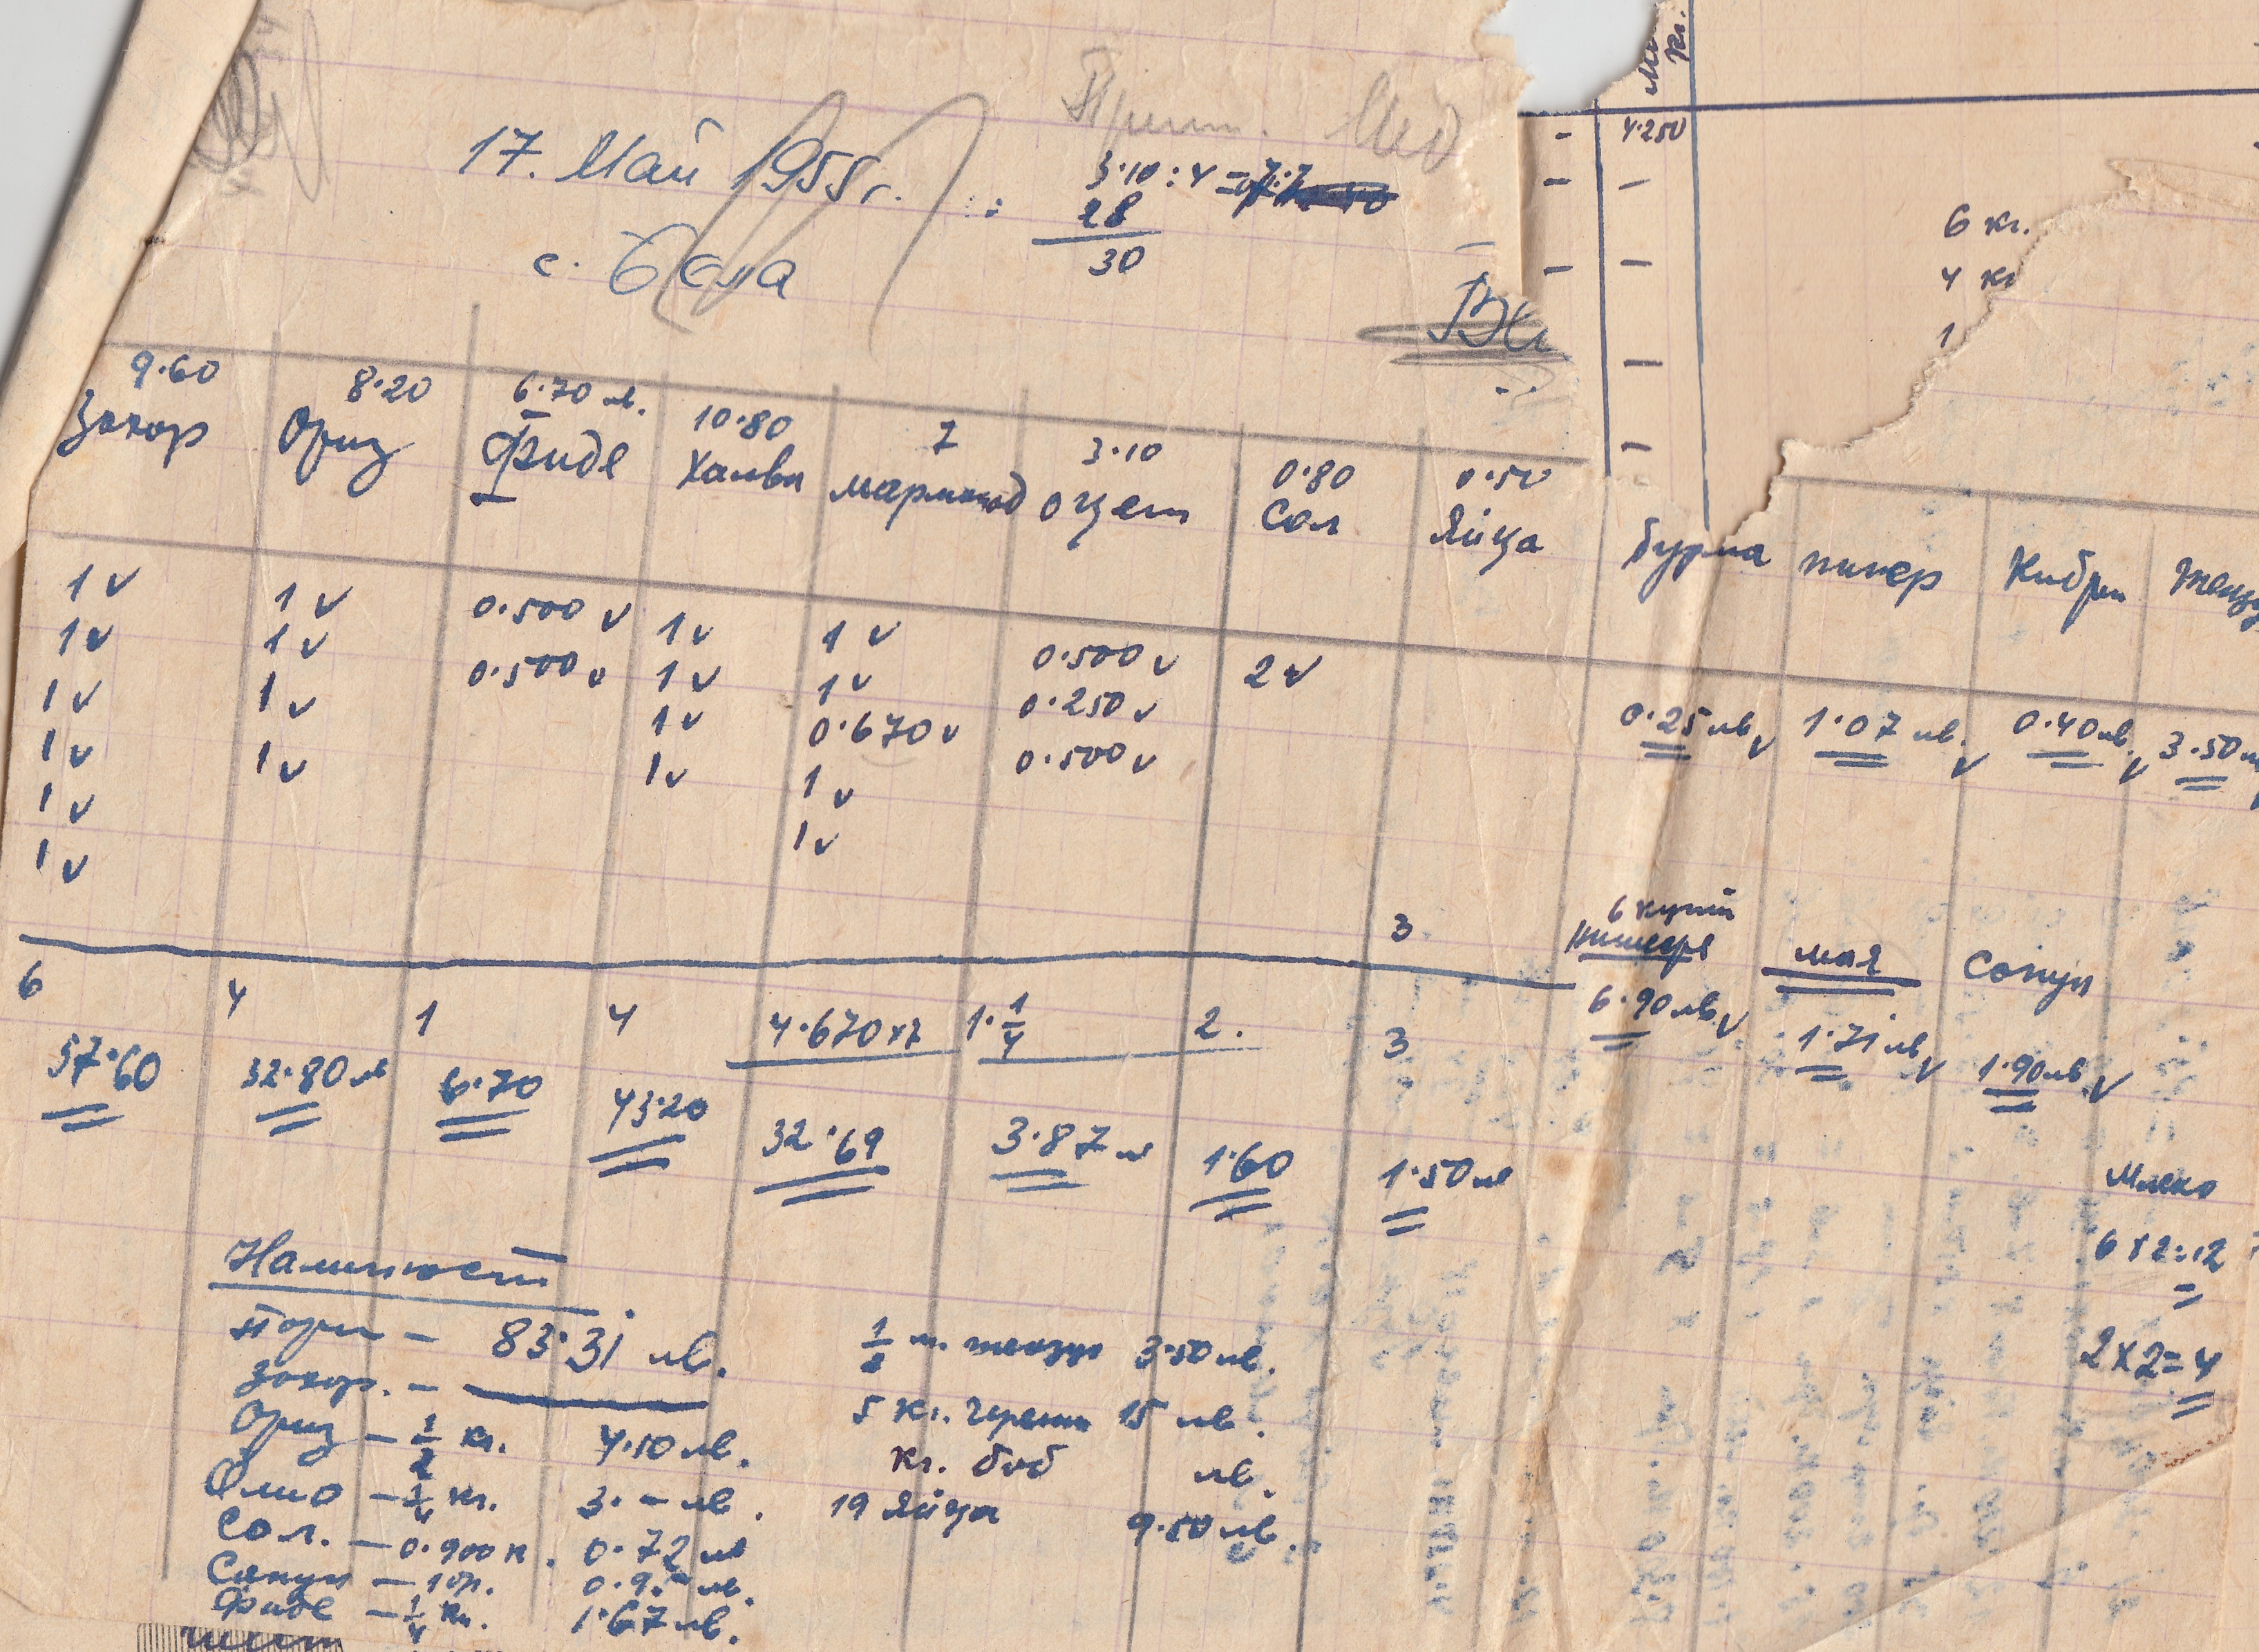 17. Май 1955 г.
с. Бела
3·10 : 4 =
28
30
4·250
6 кг.
4 кг
1
9·60 8·20 6·70 лв. 10·80 7 3·10 0·80 0·50
Захар Ориз Фиде Халва мармалад оцет Сол Яйца бурма пипер Кибрит
1 v 1 v 0.500 v 1 v 1 v 0.500 v 2 v
1 v 1 v 0.500 v 1 v 1 v 0.250 v
1 v 1 v 1 v 0.670 v 0.500 v
1 v 1 v 1 v 1 v
1 v 1 v
1 v
0.25 лв. v 1·07 лв. v 0·40 лв. v 3·50
3
6 кутии
мая Сапун
6 4 1 4 4·670 x 7 1·1/4 2. 3
6·90 лв. v 1·71 лв. v 1·90 лв v
57·60 32·80 лв 6·70 43·20 32·69 3·87 лв 1·60 1·50 лв
Мляко
6 x 2 = 12
2 x 2 = 4
Наличност
Пари – 83·31 лв.
Захар. –
Ориз – 1/2 кг. 4·10 лв.
Олио – 1/4 кг. 3·– лв.
Сол. – 0·900 к. 0·72 лв
Сапун – 1 бр. 0·95 лв.
Фиде – 1/4 кг. 1·67 лв.
1/2 м. тензух 3·50 лв.
5 кг. череши 15 лв.
кг. боб лв.
19 Яйца 9·50 лв.